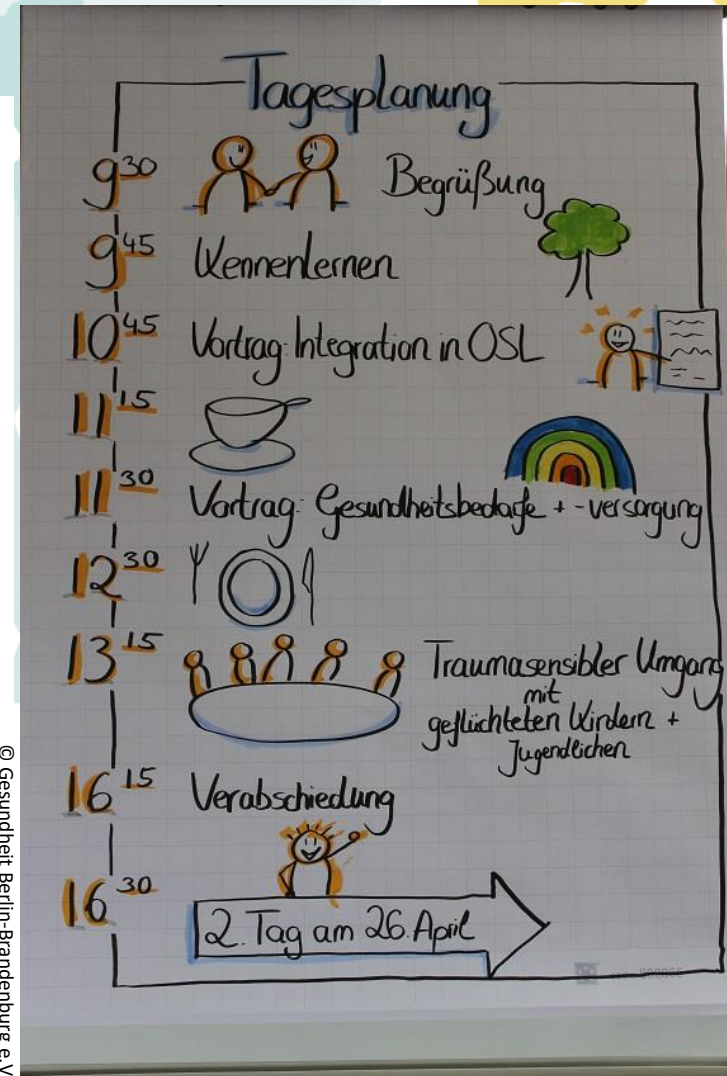 Tagesplanung
9 30 Begrüßung
9 45 Kennenlernen
10 45 Vortrag: Integration in OSL
11 15
11 30 Vortrag: Gesundheitsbedarfe + -versorgung
12 30
13 15 Traumasensibler Umgang
mit
geflüchteten Kindern +
Jugendlichen
16 15 Verabschiedung
16 30
2. Tag am 26. April
© Gesundheit Berlin-Brandenburg e.V